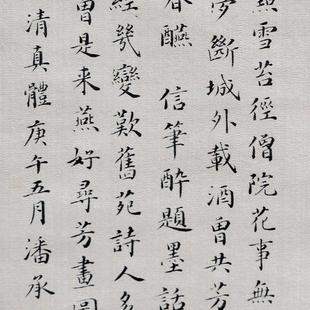 點雪苔徑僧院花事無
夢斷城外載酒曾共芳
春醼 信筆醉題墨話
經幾變歎舊苑詩人多
曾是来燕好尋芳畫圖
清真體庚午五月潘承